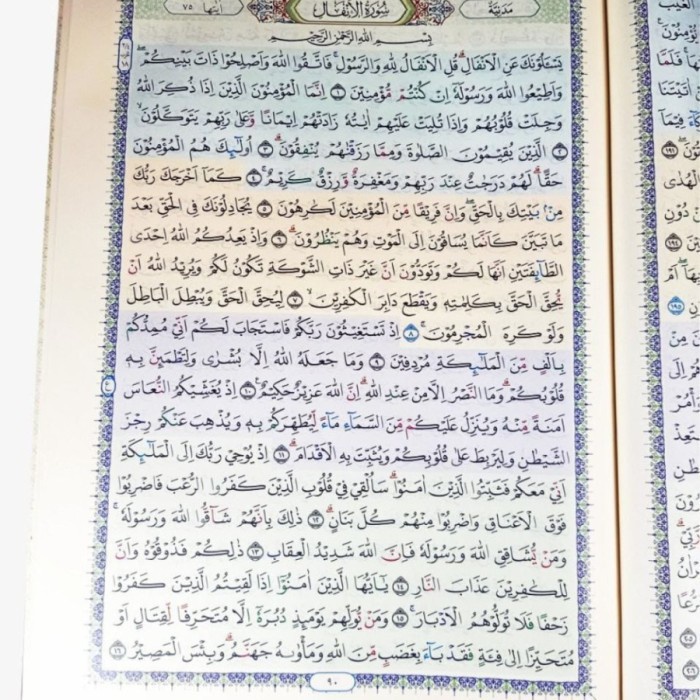 مدنية
سورة الأنفال
آيتها ٧٥
بِسْمِ اللهِ الرَّحْمٰنِ الرَّحِيْمِ
يَسْـَٔلُوْنَكَ عَنِ الْاَنْفَالِۗ قُلِ الْاَنْفَالُ لِلّٰهِ وَالرَّسُوْلِۚ فَاتَّقُوا اللّٰهَ وَاَصْلِحُوْا ذَاتَ بَيْنِكُمْۖ
وَاَطِيْعُوا اللّٰهَ وَرَسُوْلَهٗٓ اِنْ كُنْتُمْ مُّؤْمِنِيْنَ ١ اِنَّمَا الْمُؤْمِنُوْنَ الَّذِيْنَ اِذَا ذُكِرَ اللّٰهُ
وَجِلَتْ قُلُوْبُهُمْ وَاِذَا تُلِيَتْ عَلَيْهِمْ اٰيٰتُهٗ زَادَتْهُمْ اِيْمَانًا وَّعَلٰى رَبِّهِمْ يَتَوَكَّلُوْنَۙ
٢ الَّذِيْنَ يُقِيْمُوْنَ الصَّلٰوةَ وَمِمَّا رَزَقْنٰهُمْ يُنْفِقُوْنَۗ ٣ اُولٰۤىِٕكَ هُمُ الْمُؤْمِنُوْنَ
حَقًّاۗ لَهُمْ دَرَجٰتٌ عِنْدَ رَبِّهِمْ وَمَغْفِرَةٌ وَّرِزْقٌ كَرِيْمٌۚ ٤ كَمَآ اَخْرَجَكَ رَبُّكَ
مِنْۢ بَيْتِكَ بِالْحَقِّۖ وَاِنَّ فَرِيْقًا مِّنَ الْمُؤْمِنِيْنَ لَكٰرِهُوْنَۙ ٥ يُجَادِلُوْنَكَ فِى الْحَقِّ بَعْدَ
مَا تَبَيَّنَ كَاَنَّمَا يُسَاقُوْنَ اِلَى الْمَوْتِ وَهُمْ يَنْظُرُوْنَۗ ٦ وَاِذْ يَعِدُكُمُ اللّٰهُ اِحْدَى
الطَّاۤىِٕفَتَيْنِ اَنَّهَا لَكُمْ وَتَوَدُّوْنَ اَنَّ غَيْرَ ذَاتِ الشَّوْكَةِ تَكُوْنُ لَكُمْ وَيُرِيْدُ اللّٰهُ اَنْ
يُّحِقَّ الْحَقَّ بِكَلِمٰتِهٖ وَيَقْطَعَ دَابِرَ الْكٰفِرِيْنَۙ ٧ لِيُحِقَّ الْحَقَّ وَيُبْطِلَ الْبَاطِلَ
وَلَوْ كَرِهَ الْمُجْرِمُوْنَۚ ٨ اِذْ تَسْتَغِيْثُوْنَ رَبَّكُمْ فَاسْتَجَابَ لَكُمْ اَنِّيْ مُمِدُّكُمْ
بِاَلْفٍ مِّنَ الْمَلٰۤىِٕكَةِ مُرْدِفِيْنَ ٩ وَمَا جَعَلَهُ اللّٰهُ اِلَّا بُشْرٰى وَلِتَطْمَىِٕنَّ بِهٖ
قُلُوْبُكُمْۗ وَمَا النَّصْرُ اِلَّا مِنْ عِنْدِ اللّٰهِۗ اِنَّ اللّٰهَ عَزِيْزٌ حَكِيْمٌ ١٠ اِذْ يُغَشِّيْكُمُ النُّعَاسَ
اَمَنَةً مِّنْهُ وَيُنَزِّلُ عَلَيْكُمْ مِّنَ السَّمَاۤءِ مَاۤءً لِّيُطَهِّرَكُمْ بِهٖ وَيُذْهِبَ عَنْكُمْ رِجْزَ
الشَّيْطٰنِ وَلِيَرْبِطَ عَلٰى قُلُوْبِكُمْ وَيُثَبِّتَ بِهِ الْاَقْدَامَۗ ١١ اِذْ يُوْحِيْ رَبُّكَ اِلَى الْمَلٰۤىِٕكَةِ
اَنِّيْ مَعَكُمْ فَثَبِّتُوا الَّذِيْنَ اٰمَنُوْاۗ سَاُلْقِيْ فِيْ قُلُوْبِ الَّذِيْنَ كَفَرُوا الرُّعْبَ فَاضْرِبُوْا
فَوْقَ الْاَعْنَاقِ وَاضْرِبُوْا مِنْهُمْ كُلَّ بَنَانٍۗ ١٢ ذٰلِكَ بِاَنَّهُمْ شَاۤقُّوا اللّٰهَ وَرَسُوْلَهٗۚ
وَمَنْ يُّشَاقِقِ اللّٰهَ وَرَسُوْلَهٗ فَاِنَّ اللّٰهَ شَدِيْدُ الْعِقَابِ ١٣ ذٰلِكُمْ فَذُوْقُوْهُ وَاَنَّ
لِلْكٰفِرِيْنَ عَذَابَ النَّارِ ١٤ يٰٓاَيُّهَا الَّذِيْنَ اٰمَنُوْٓا اِذَا لَقِيْتُمُ الَّذِيْنَ كَفَرُوْا
زَحْفًا فَلَا تُوَلُّوْهُمُ الْاَدْبَارَۚ ١٥ وَمَنْ يُّوَلِّهِمْ يَوْمَىِٕذٍ دُبُرَهٗٓ اِلَّا مُتَحَرِّفًا لِّقِتَالٍ اَوْ
مُتَحَيِّزًا اِلٰى فِئَةٍ فَقَدْ بَاۤءَ بِغَضَبٍ مِّنَ اللّٰهِ وَمَأْوٰىهُ جَهَنَّمُۗ وَبِئْسَ الْمَصِيْرُ ١٦
٩٠